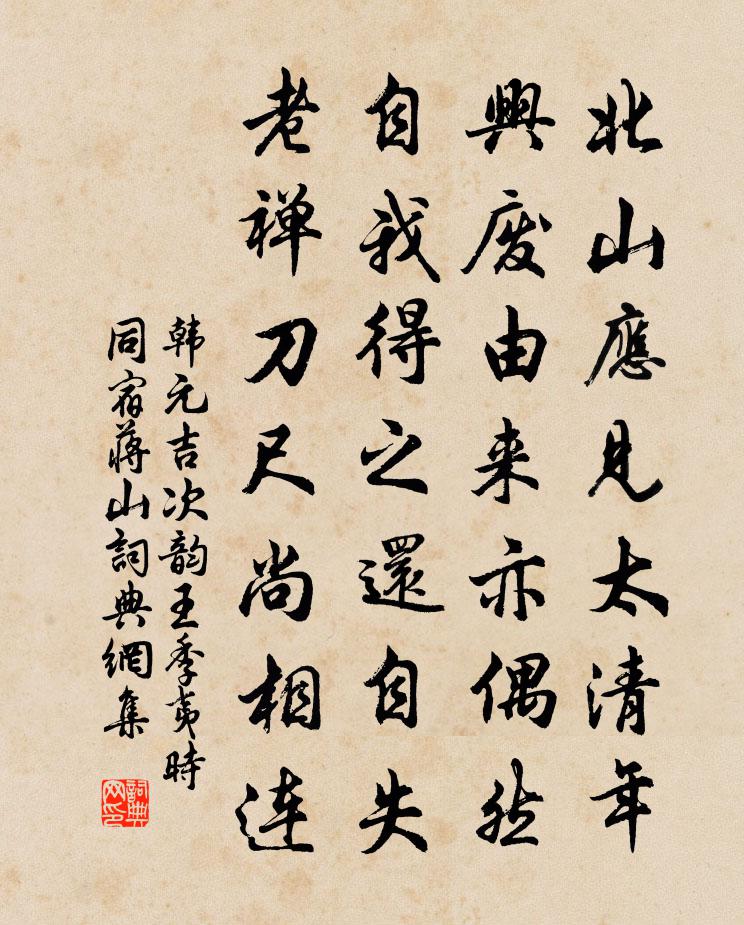 北山應見太清年
興廢由来亦偶然
自我得之還自失
老禅刀尺尚相连
韩元吉次韵王季夷時
同宿蒋山詞典網集
詞典网印